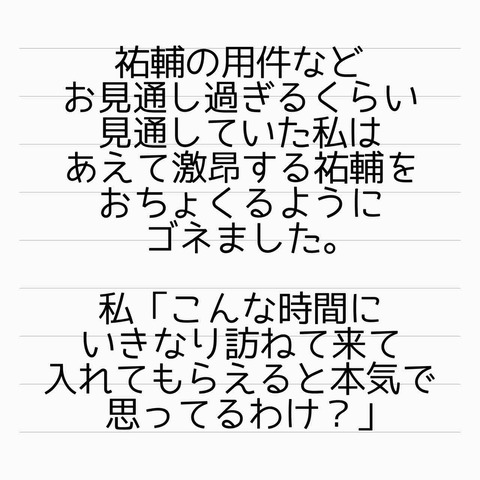 祐輔の用件など
お見通し過ぎるくらい
見通していた私は
あえて激昂する祐輔を
おちょくるように
ゴネました。
私「こんな時間に
いきなり訪ねて来て
入れてもらえると本気で
思ってるわけ？」